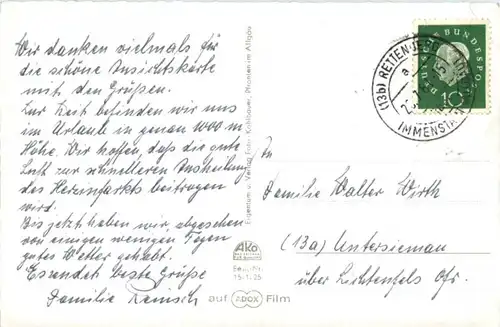 Wir danken vielmals für
die schöne Ansichtskarte
mit den Grüßen.
Zur Zeit befinden wir uns
im Urlaube in genau 1000 m
Höhe. Wir hoffen, daß die gute
Luft zur schnelleren Ausheilung
des Herzinfarkts beitragen
wird.
Bis jetzt haben wir, abgesehen
von einigen wenigen Tagen
gutes Wetter gehabt.
Es sendet beste Grüße
Familie
Eigentum u. Verlag Foto Kohlbauer, Pfronten im Allgäu
AKo
15.1.25
auf ADOX Film
DEUTSCHE BUNDESPOST
10
(13b) RETTENBERG
IMMENSTADT
An
Familie Walter Wirth
(13a) Untersiemau
über Lichtenfels Ofr.